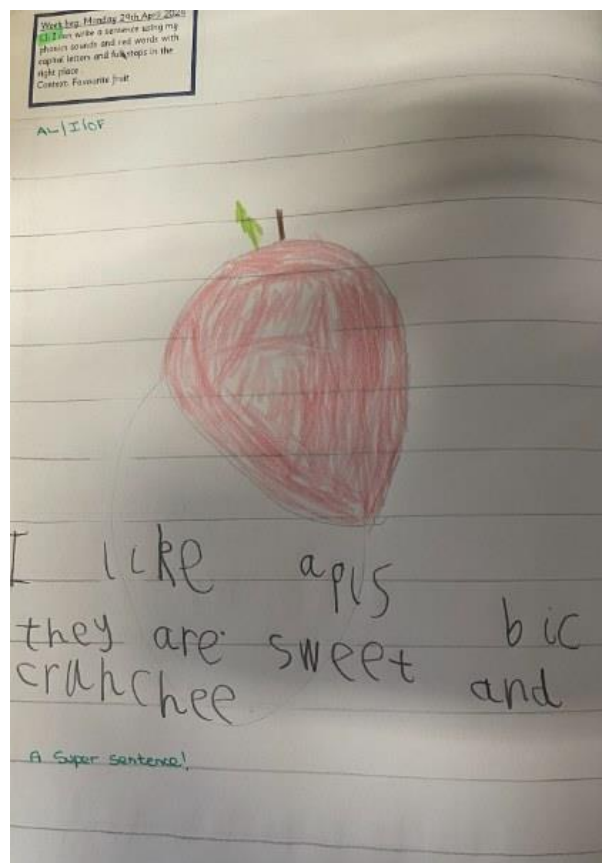 Week beg. Monday 29th April 2024
L.I. I can write a sentence using my
phonics sounds and red words with
capital letters and full stops in the
right place
Context: Favourite fruit
AL/I/OF
I like apls bic
they are sweet and
crunchee
A Super sentence!